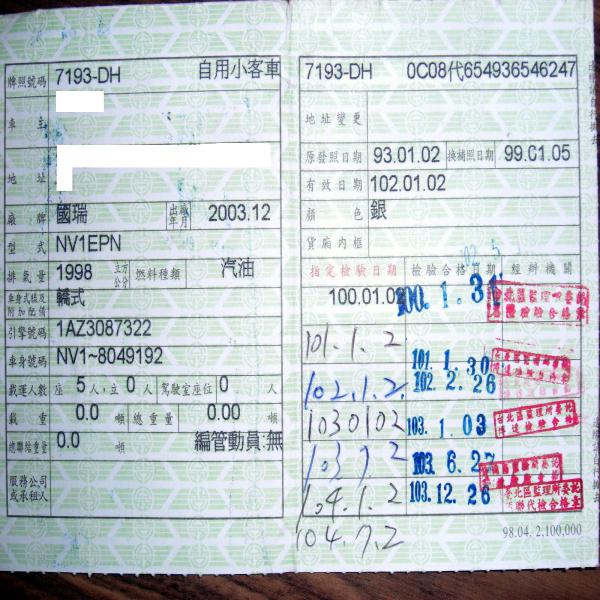 牌照號碼 7193-DH 自用小客車
車主
地址
廠牌 國瑞 出廠年月 2003.12
型式 NV1EPN
排氣量 1998 立方公分 燃料種類 汽油
車身式樣及附加配備 轎式
引擎號碼 1AZ3087322
車身號碼 NV1~8049192
載運人數 座 5 人,立 0 人 駕駛室座位 0 人
載重 0.0 噸 總重量 0.00 噸
總聯結重量 0.0 噸 編管動員:無
服務公司或承租人
7193-DH 0C08代654936546247
地址變更
原發照日期 93.01.02 換補照日期 99.01.05
有效日期 102.01.02
顏色 銀
貨廂內框
指定檢驗日期 檢驗合格日期 經辦機關
100.01.02 100.1.31
101.1.2 101.1.30
102.1.2 102.2.26
1030102 103.1.03 台北區監理所委託
103.7.2 103.6.27
104.1.2 103.12.26 台北區監理所委託
104.7.2
98.04.2,100,000